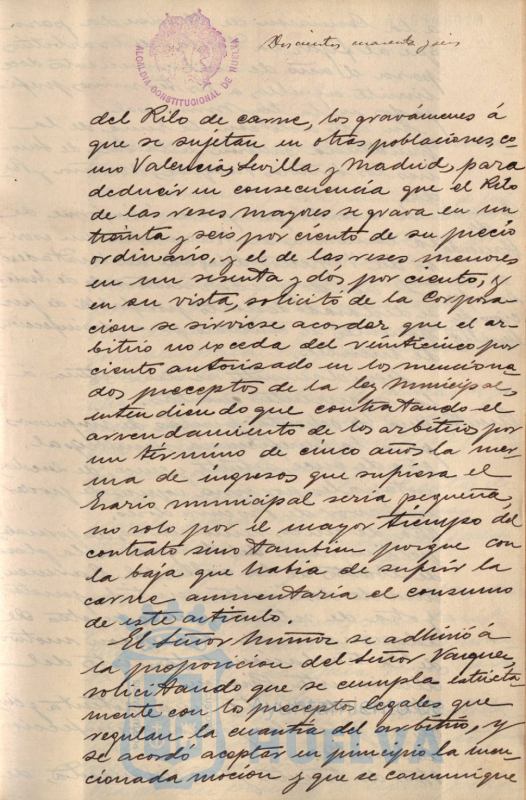 ALCALDIA CONSTITUCIONAL DE HUELVA
Doscientos cuarenta y seis
del Kilo de carne, los gravámenes á
que se sujetan en otras poblaciones, co-
mo Valencia, Sevilla y Madrid, para
deducir en consecuencia que el Kilo
de las reses mayores se grava en un
treinta y seis por ciento de su precio
ordinario, y el de las reses menores
en un sesenta y dós por ciento, y
en su vista, solicitó de la Corpora
cion se sirviese acordar que el ar-
bitrio no exceda del veinticinco por
ciento autorizado en los menciona
dos preceptos de la ley Municipal,
entendiendo que contratando el
arrendamiento de los arbitrios por
un término de cinco años la mer-
ma de ingresos que sufriera el
Erario municipal seria pequeña,
no solo por el mayor tiempo del
contrato sino tambien porque con
la baja que habia de sufrir la
carne aumentaria el consumo
de este articulo.
El Señor Muñoz se adhirió á
la proposicion del Señor Vazquez,
solicitando que se cumpla estricta-
mente con los preceptos legales que
regulan la cuantia del arbitrio, y
se acordó aceptar en principio la men-
cionada moción y que se comunique